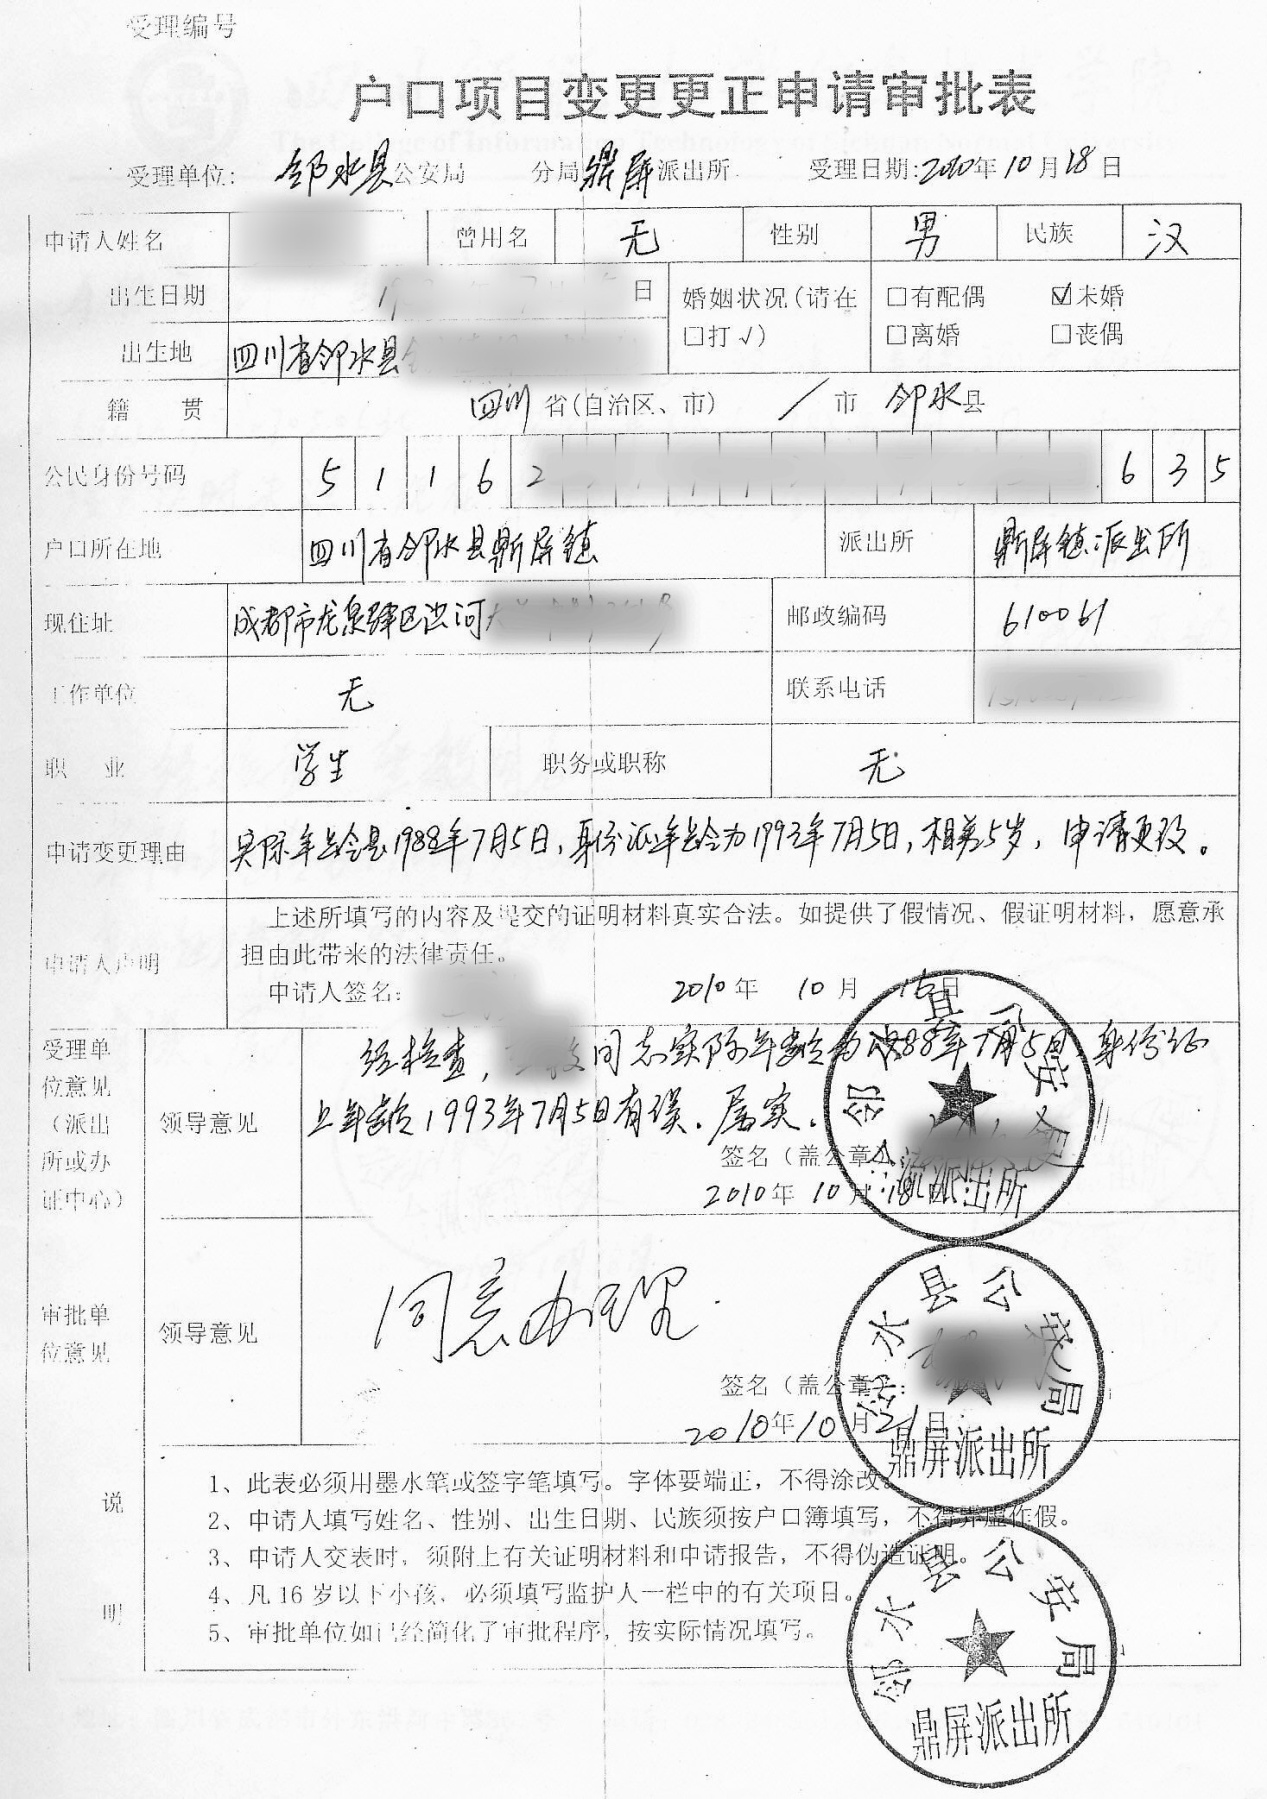 受理编号
户口项目变更更正申请审批表
受理单位: 邻水县公安局 分局鼎屏派出所 受理日期:2010年10月18日
申请人姓名 曾用名 无 性别 男 民族 汉
出生日期 日 婚姻状况(请在□打√) □有配偶 ☑未婚
出生地 四川省邻水县 □离婚 □丧偶
籍 贯 四川省(自治区、市) / 市 邻水县
公民身份号码 5 1 1 6 2 6 3 5
户口所在地 四川省邻水县鼎屏镇 派出所 鼎屏镇派出所
现住址 成都市龙泉驿区洪河 邮政编码 610061
工作单位 无 联系电话
职 业 学生 职务或职称 无
申请变更理由 实际年龄是1988年7月5日,身份证年龄为1993年7月5日,相差5岁,申请更改。
上述所填写的内容及提交的证明材料真实合法。如提供了假情况、假证明材料，愿意承
担由此带来的法律责任。
申请人声明
申请人签名: 2010年 10月 15日
受理单位意见（派出所或办证中心） 领导意见
经检查, 同志实际年龄为1988年7月5日,身份证
上年龄1993年7月5日有误.属实.
签名（盖公章）
2010年10月18日
邻水县公安局
派出所
审批单位意见 领导意见
同意办理.
签名（盖公章）:
2010年10月21日
邻水县公安局
鼎屏派出所
说明
1、此表必须用墨水笔或签字笔填写。字体要端正，不得涂改。
2、申请人填写姓名、性别、出生日期、民族须按户口簿填写，不得弄虚作假。
3、申请人交表时，须附上有关证明材料和申请报告，不得伪造证明。
4、凡16岁以下小孩，必须填写监护人一栏中的有关项目。
5、审批单位如已经简化了审批程序，按实际情况填写。
邻水县公安局
鼎屏派出所